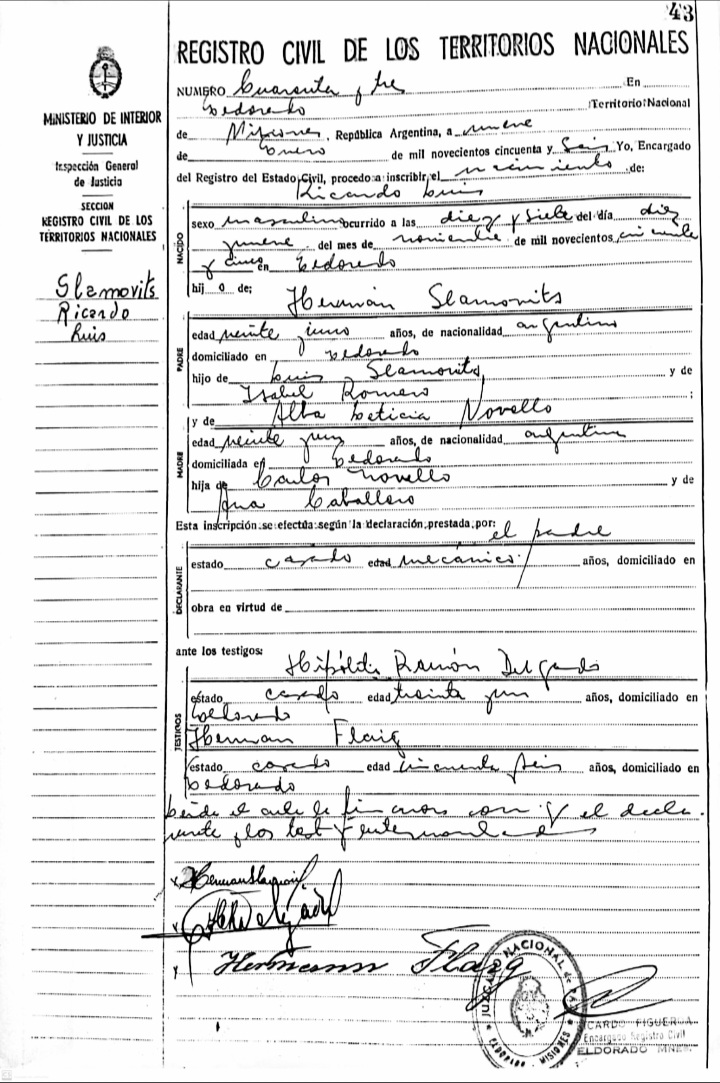 43
REGISTRO CIVIL DE LOS TERRITORIOS NACIONALES
MINISTERIO DE INTERIOR
Y JUSTICIA
Inspección General
de Justicia
SECCION
REGISTRO CIVIL DE LOS
TERRITORIOS NACIONALES
Slamovits
Ricardo
Luis
NUMERO Cuarenta y tres En
Eldorado Territorio Nacional
de Misiones, República Argentina, a nueve
de Enero de mil novecientos cincuenta y Seis Yo, Encargado
del Registro del Estado Civil, procedo a inscribir el nacimiento de:
Ricardo Luis
NACIDO
sexo masculino ocurrido a las diez y siete del día diez
y nueve del mes de noviembre de mil novecientos cincuenta
y cinco en Eldorado
hijo de:
Hermán Slamovits
PADRE
edad veinte y uno años, de nacionalidad argentino
domiciliado en Eldorado
hijo de Luis Slamovits y de
Isabel Romero ;
y de Alba Leticia Novello
MADRE
edad veinte y un años, de nacionalidad argentina
domiciliada en Eldorado
hija de Carlos Novello y de
Ana Caballero
Esta inscripción se efectúa según la declaración prestada por: el padre
DECLARANTE
estado casado edad mecánico años, domiciliado en
obra en virtud de
ante los testigos:
Hipólito Ramón Delgado
TESTIGOS
estado casado edad treinta y un años, domiciliado en
Eldorado
Herman Flaig
estado casado edad cincuenta y seis años, domiciliado en
Eldorado
el acta la firmaron con el decla
rante y los test
Hermann Flaig
NACIONAL de
ELDORADO - MISIONES
RICARDO FIGUEROA
Encargado Registro Civil
ELDORADO MNES.